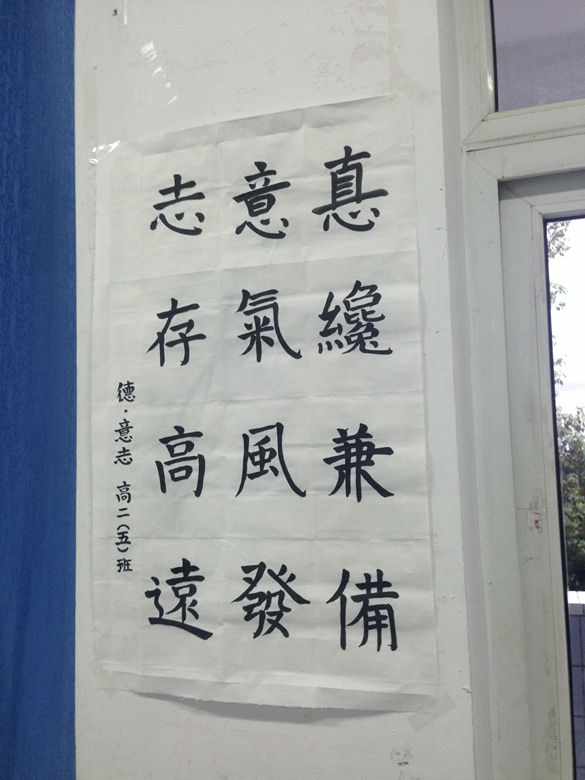 悳纔兼備
意氣風發
志存高遠
德·意志 高二(五)班